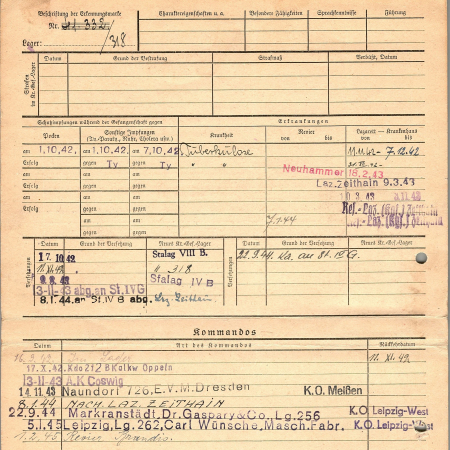 Beschriftung der Erkennungsmarke
Nr. 21 332
Lager: /318
Charaktereigenschaften u. a.
Besondere Fähigkeiten
Sprachkenntnisse
Führung
Strafen im Kr.-Gef.-Lager
Datum Grund der Bestrafung Strafmaß Verbüßt, Datum
Schutzimpfungen während der Gefangenschaft gegen
Erkrankungen
Pocken
Sonstige Impfungen
(Ty.-Paraty., Ruhr, Cholera usw.)
Krankheit
Revier
von bis
Lazarett — Krankenhaus
von bis
am 1.10.42. am 1.10.42. am 7.10.42. Tuberkulose 11.11.42- 7.12.42
Erfolg gegen Ty gegen Ty " "
am am am Neuhammer 18.2.43
Erfolg gegen gegen Laz. Zeithain 9.3.43
am am am
Erfolg gegen gegen
am am am 7.1.44
Erfolg gegen gegen
Versetzungen
Datum Grund der Versetzung Neues Kr.-Gef.-Lager
Versetzungen
Datum Grund der Versetzung Neues Kr.-Gef.-Lager
17.10.42 Stalag VIII B. 22.9.44
318
Stalag IV B
3-11-43 abg. an St. IV G
8.1.44 an St. IV B abg. Laz. Zeithain.
Kommandos
Datum Art des Kommandos Rückkehrdatum
17.X.42. Kdo 212 B Kalkw Oppeln
13-11-43 A.K Coswig
14.11.43 Naundorf 726, E.V.M. Dresden K.O. Meißen
8.1.44 NACH LAZ. ZEITHAIN
22.9.44 Markranstädt, Dr. Gaspary & Co, Lg. 256 K.O. Leipzig-West
5.1.45 Leipzig, Lg. 262, Carl Wünsche, Masch. Fabr. K.O. Leipzig-West
1.2.45 Revier Brandis.